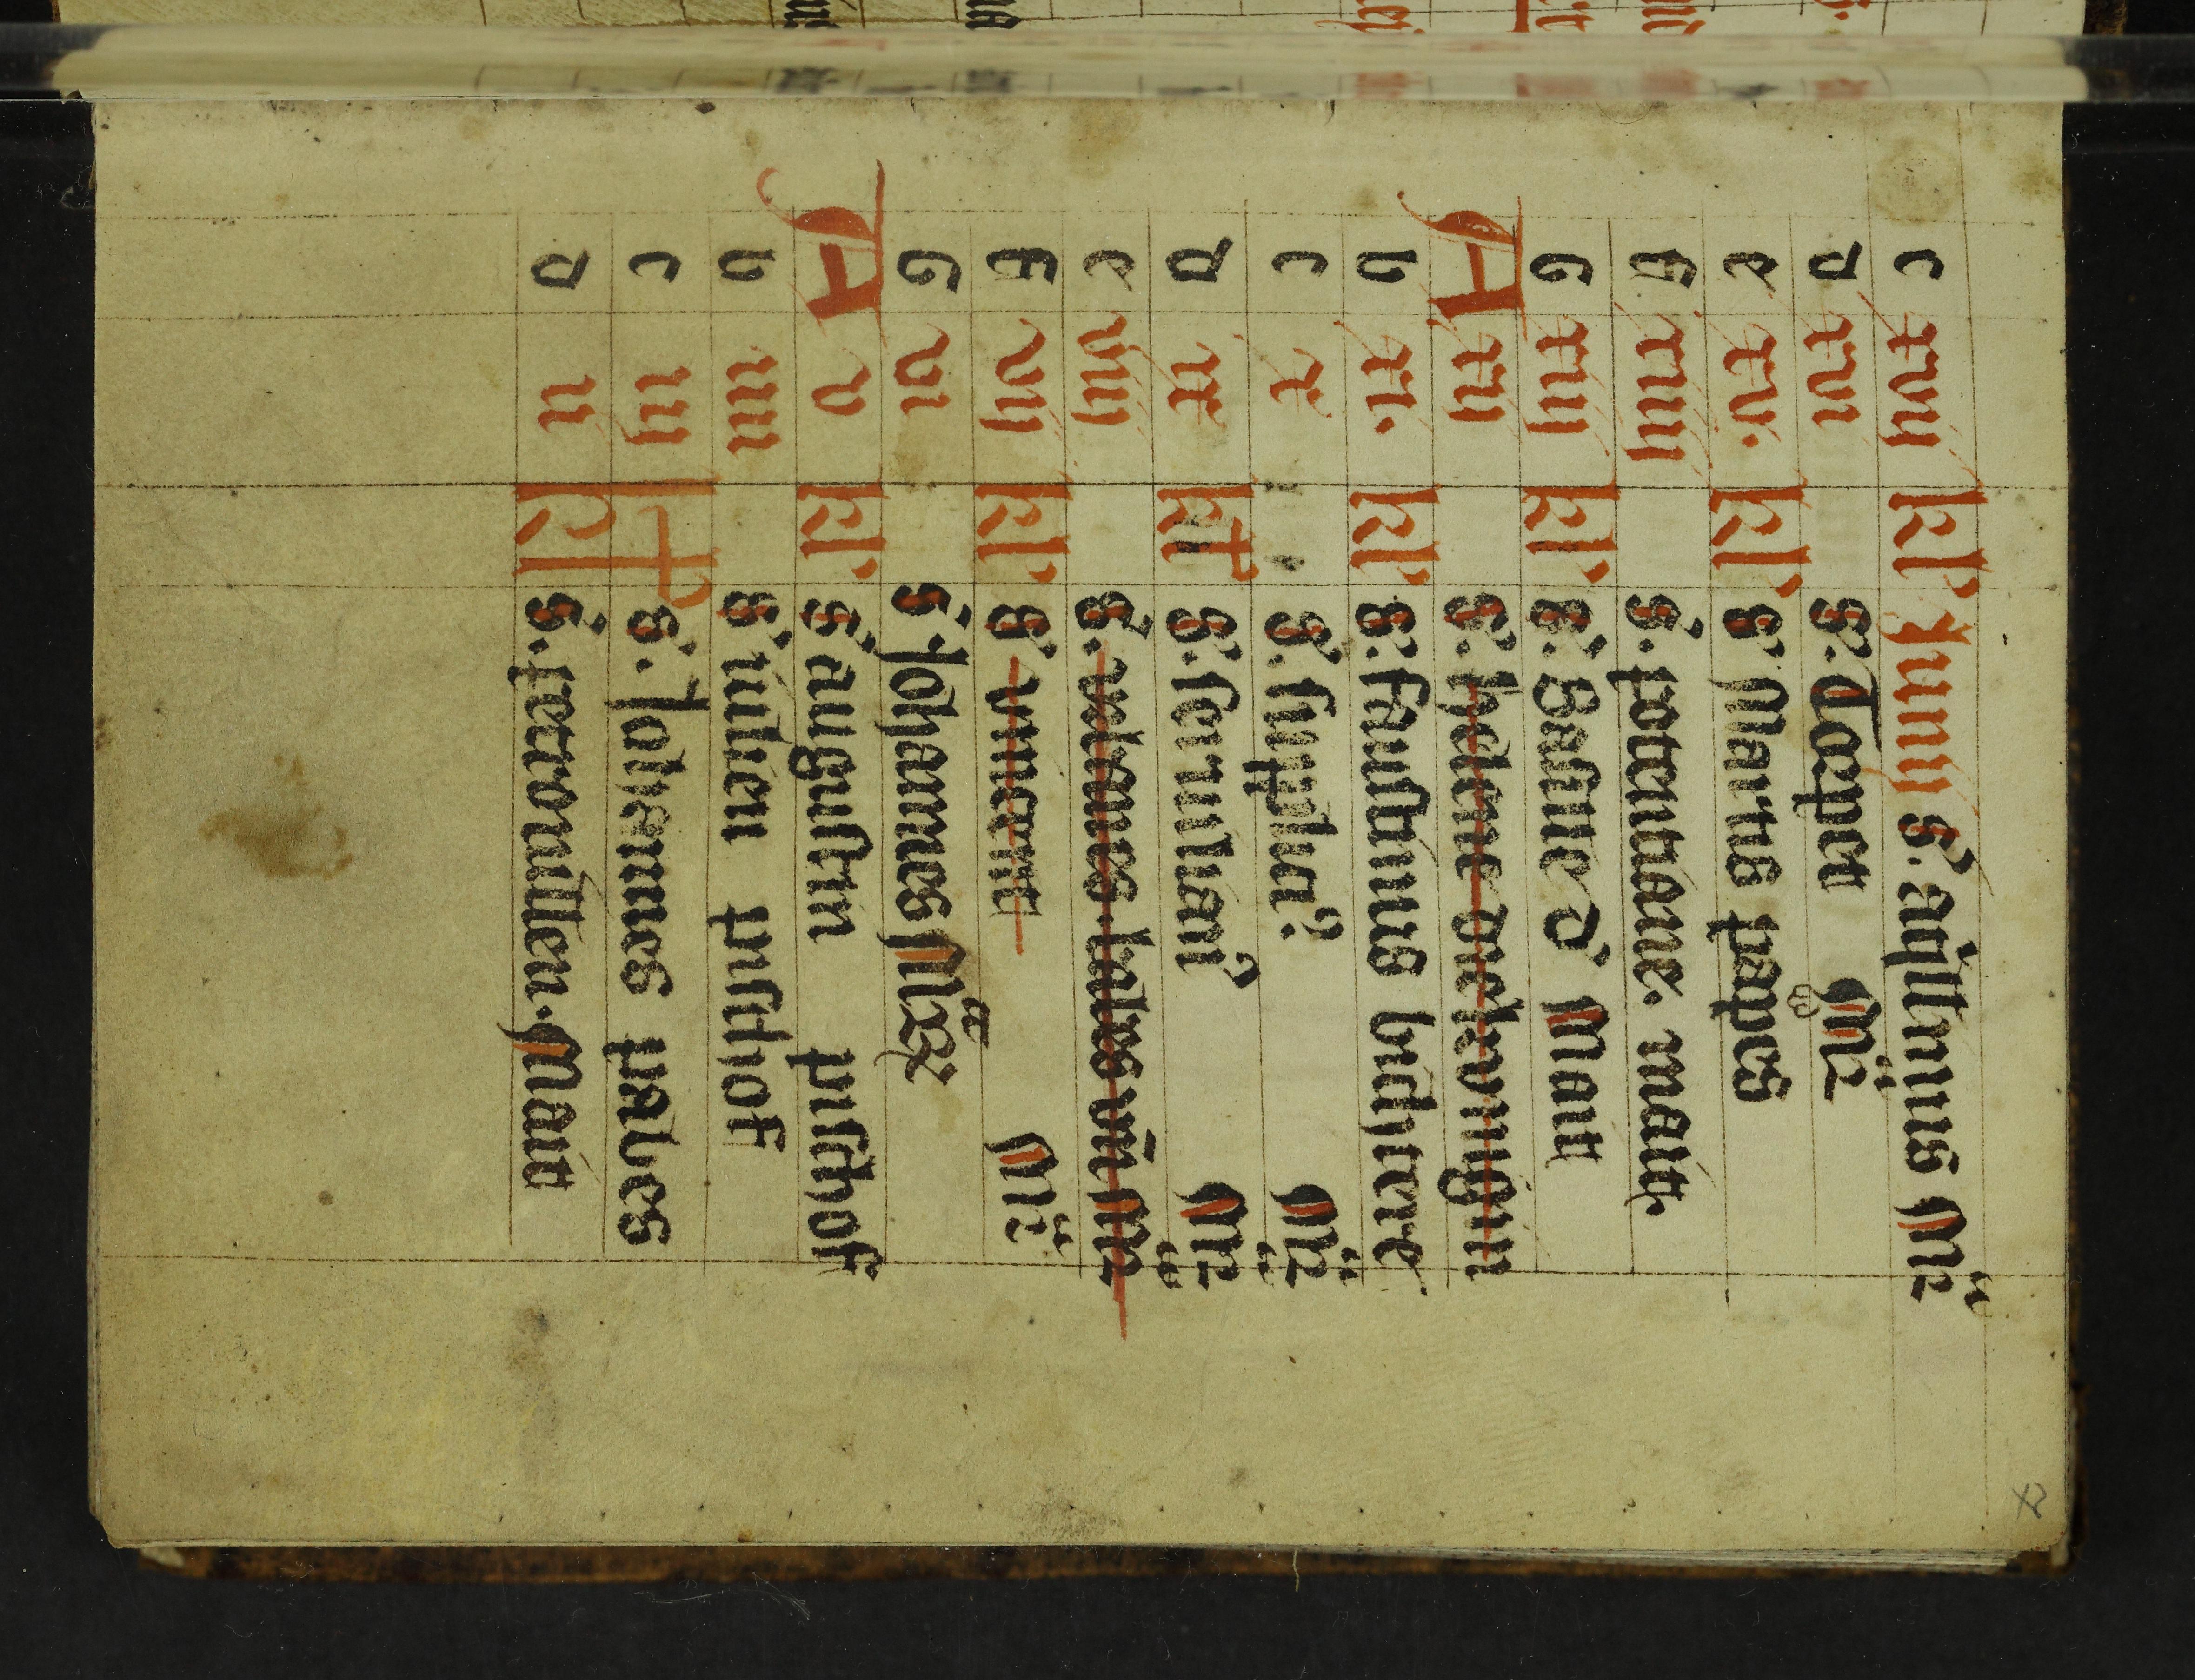 c xvij kl Junij S. aqlinus Mr
d xvi S. Torpett Mr
e xv. kl. S Marcus papes
f xiiij S. potentiane. mait.
g xiij kl. S. Basille d Mait
A xij S. helene der konigin
b xi. kl. S. faustinus bichtere
c x S. simplici Mr
d ix kl S. germani Mr
e viij S. babes vn Mr
f vij kl. S vincent Mr
g vi S. Johannes Mr
A v kl. S augustin pischof
b iiij S pischof
c iij S. Johannes pabes
d ij kl S. petronillen. Mait